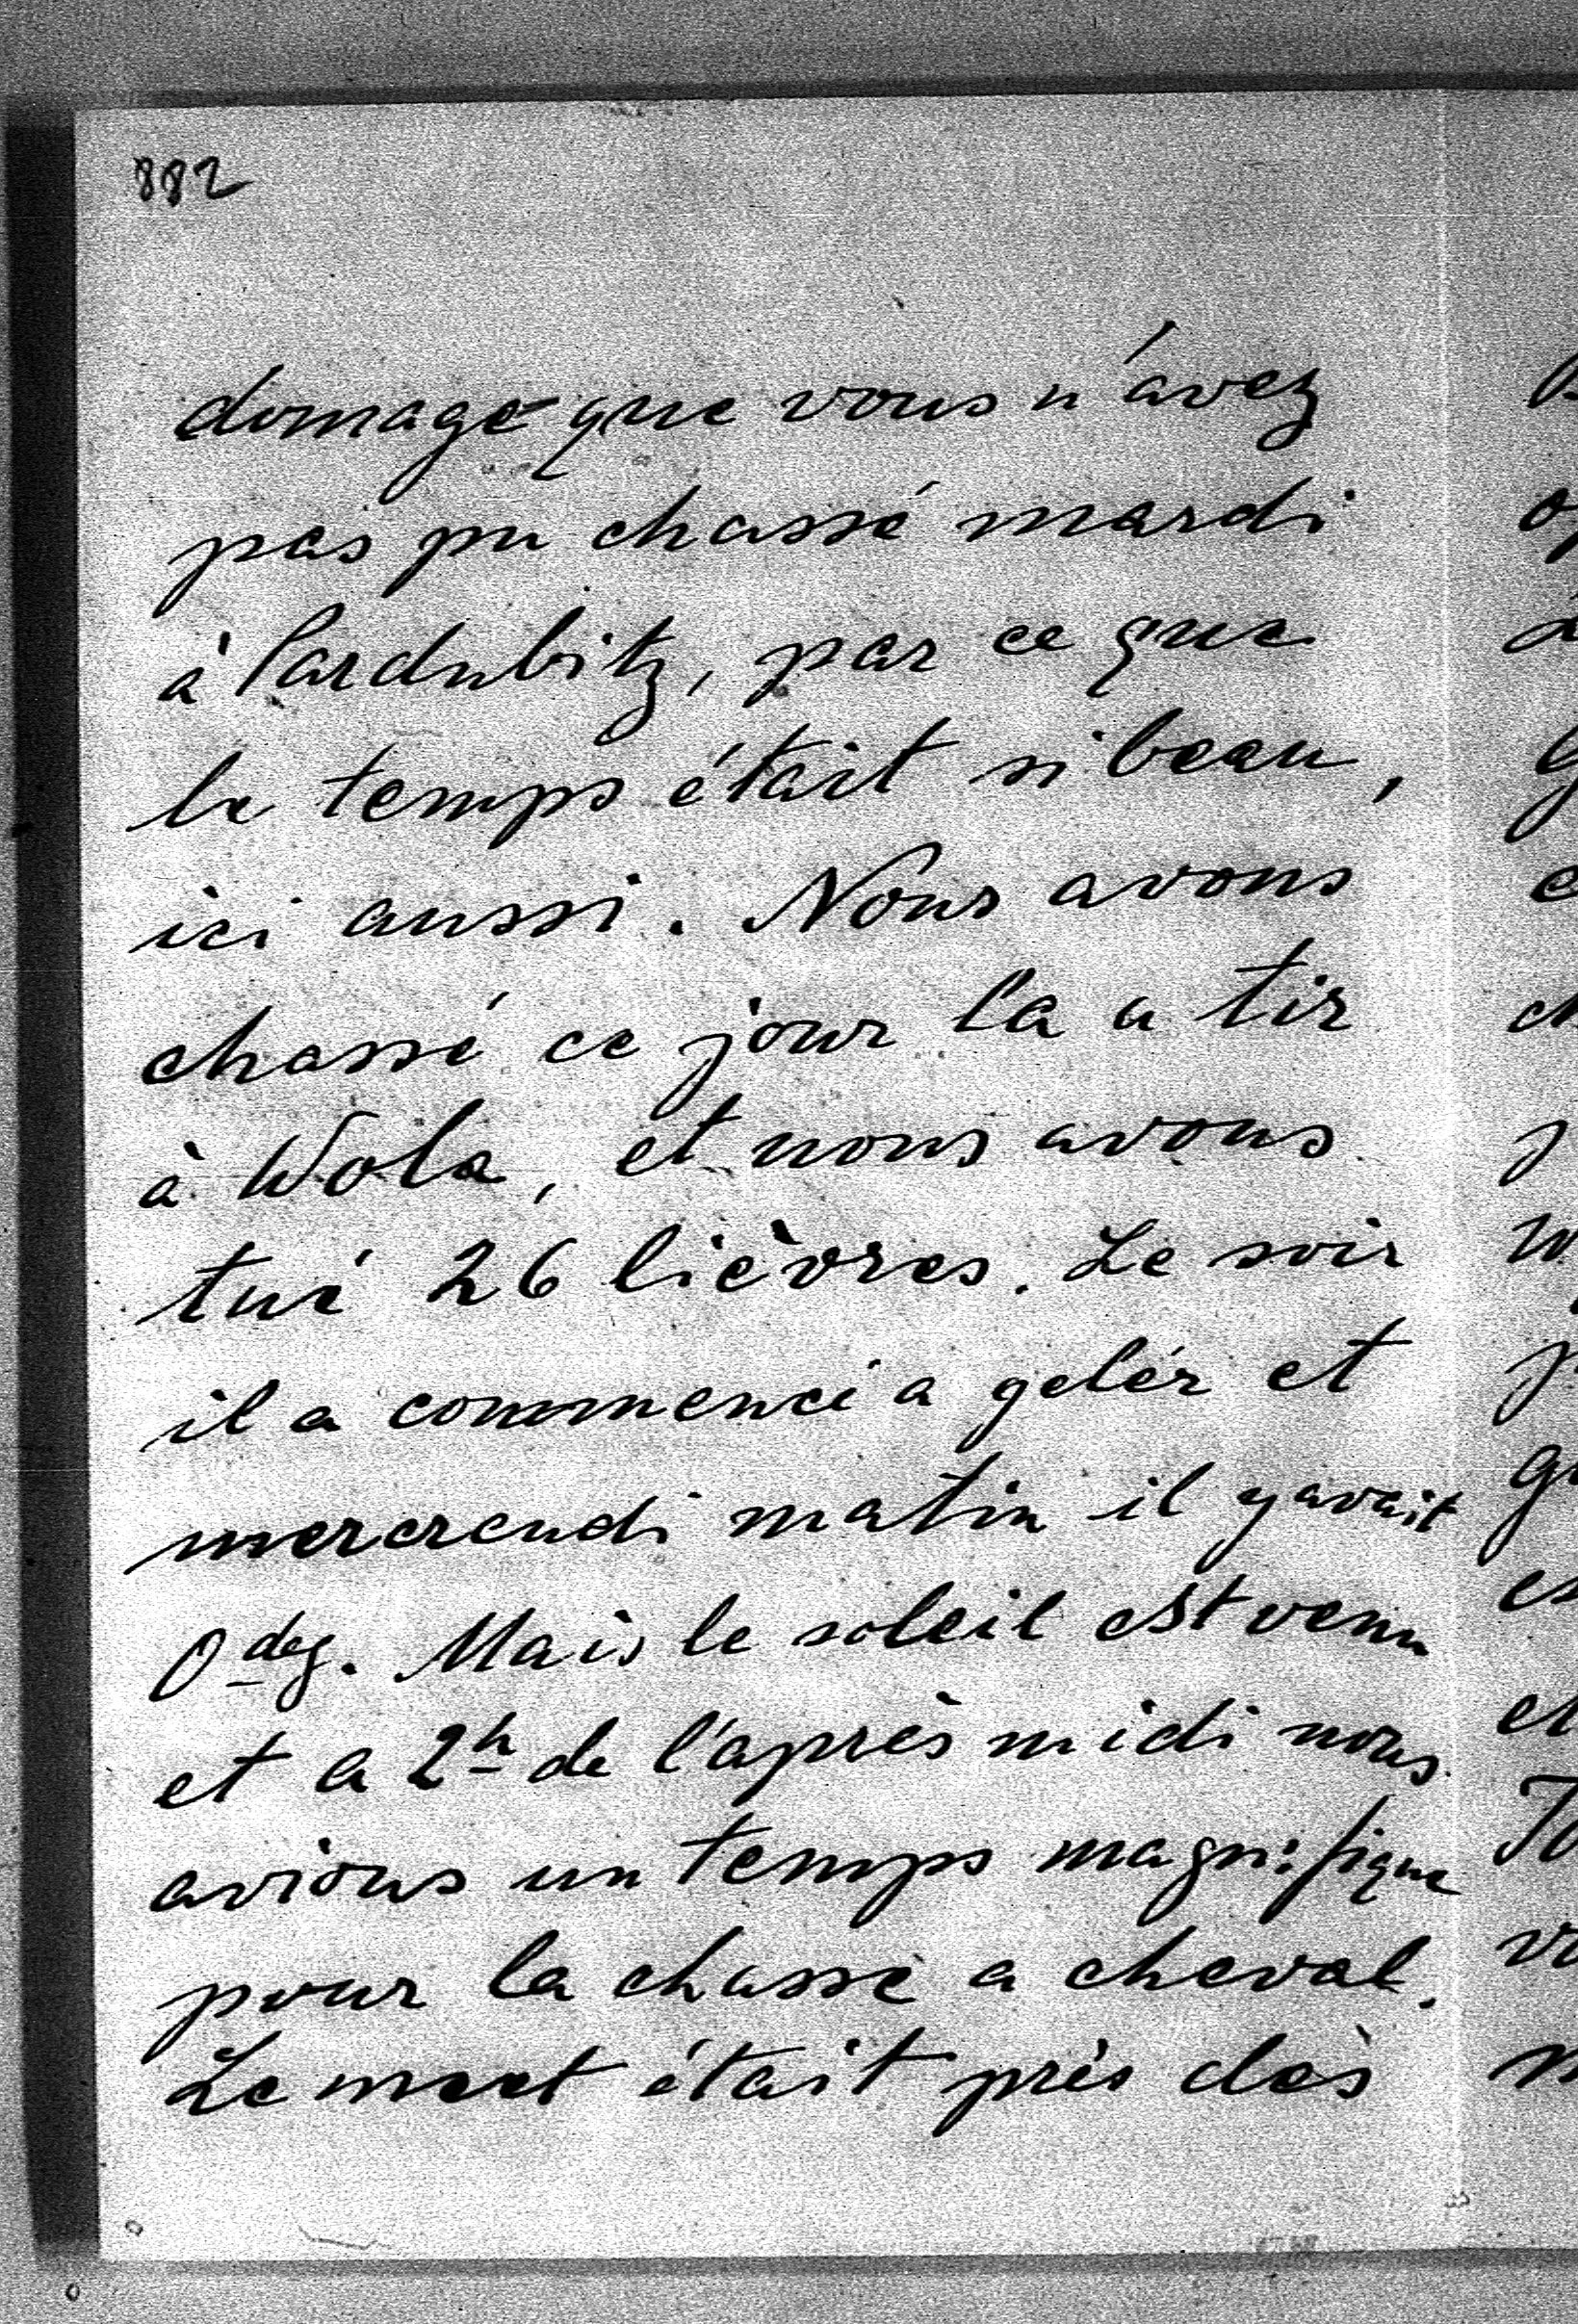 882
domage que vous n'avez
pas pu chassé mardi
à Pardubitz, par ce que
le temps était si beau,
ici aussi. Nous avons
chassé ce jour la a tir
à Wola, et nous avons
tué 26 lièvres. Le soir
il a commencé a gelér et
mercrendi matin il y avait
0 deg. Mais le soleil est venu
et a 2h de l'après midi nous
avions un temps magnifique
pour la chasse a cheval.
Le meet était près des